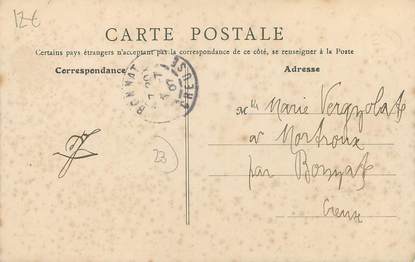 12€
CARTE POSTALE
Certains pays étrangers n'acceptant pas la correspondance de ce côté, se renseigner à la Poste
Correspondance
Adresse
BONNAT
CREUSE
Mlle Marie Vergnolate
à Mortroux
par Bonnat
Creuse
23